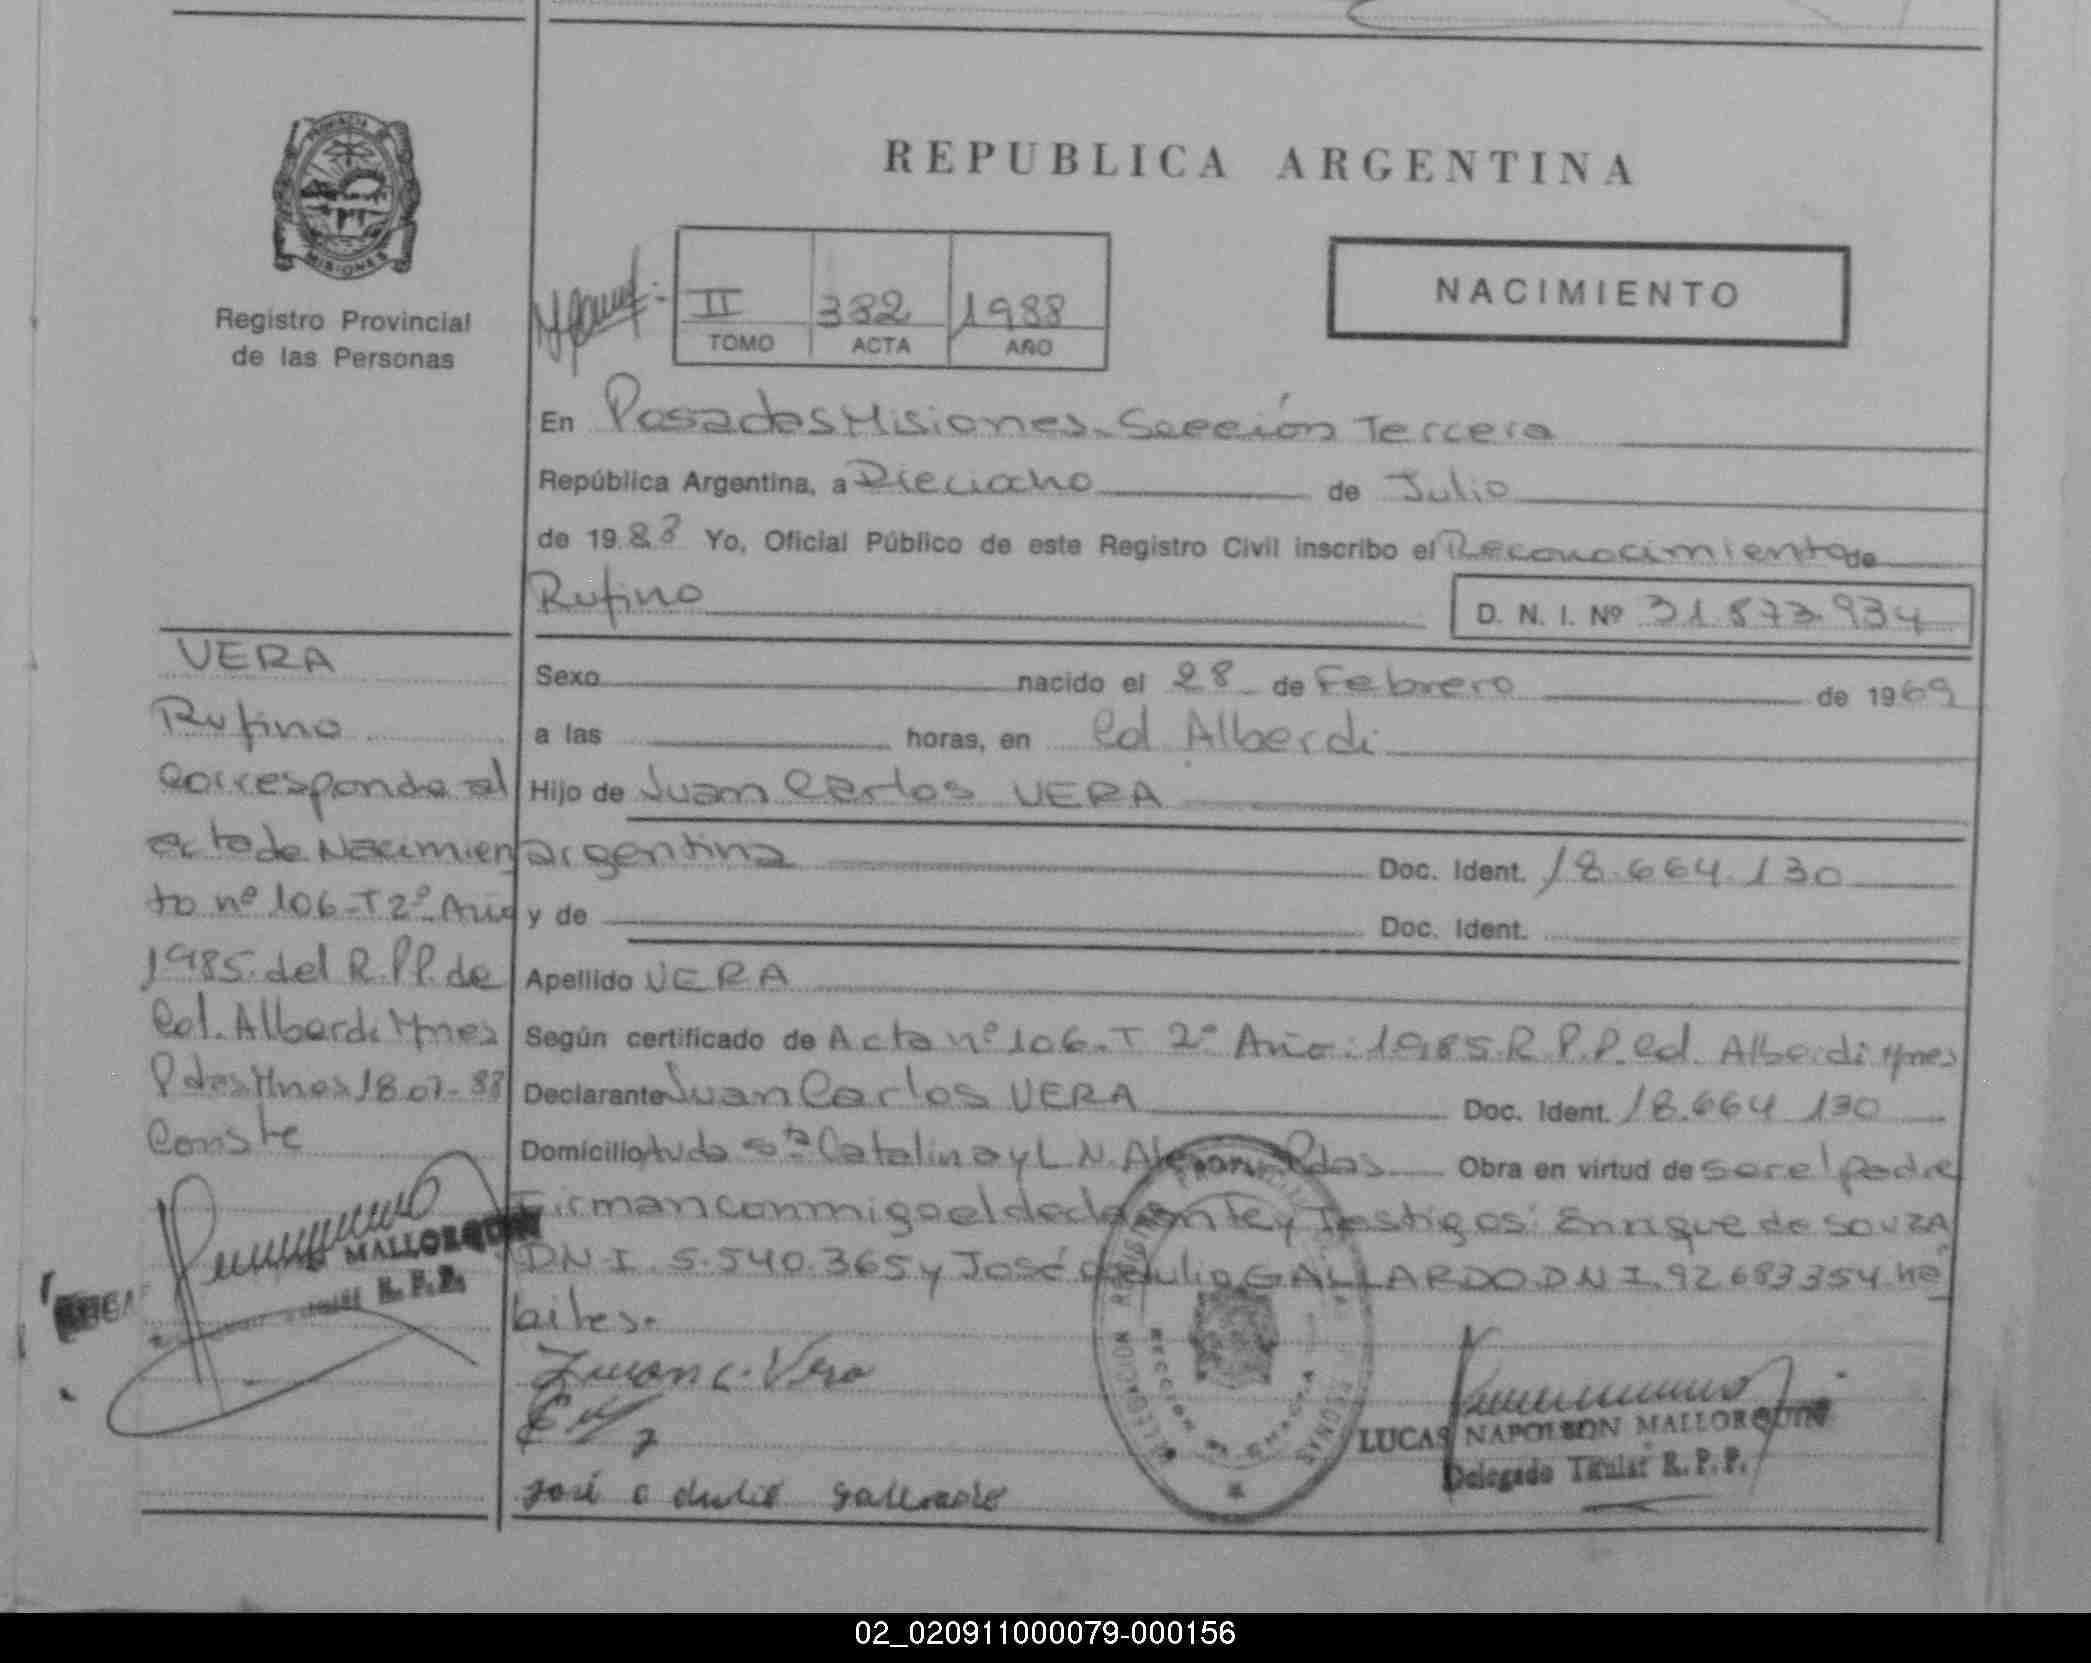 REPUBLICA ARGENTINA
PROVINCIA
MISIONES
Registro Provincial
de las Personas
II 382 1988
TOMO ACTA AÑO
NACIMIENTO
En Posadas Misiones. Sección Tercera
República Argentina, a Dieciocho de Julio
de 1988 Yo, Oficial Público de este Registro Civil inscribo el Reconocimiento de
Rufino D. N. I. Nº 31.873.934
Sexo nacido el 28 de Febrero de 1969
a las horas, en Col. Alberdi
Hijo de Juan Carlos VERA
argentina Doc. Ident. 18.664.130
y de Doc. Ident.
Apellido VERA
Según certificado de Acta nº 106. T 2º Año: 1985 R.P.P. Col. Alberdi Mnes
Declarante Juan Carlos VERA Doc. Ident. 18.664 130
Domicilio Avda Sta Catalina y L. N. Pdas Obra en virtud de ser el padre
Firman conmigo el declarante y Testigos: Enrique de SOUZA
D.N.I. 5.540.365 y José GALLARDO D.N.I. 92.683354 há
biles.
Juan C. Vera
José gallardo
LUCAS NAPOLEON MALLORQUIN
Delegado Titular R. P. P.
VERA
Rufino
Corresponde al
acta de Nacimien
to nº 106-T 2º Año
1985. del R.P.P. de
Col. Alberdi Mnes
Pdas Mnes 18.07-88
Conste
MALLORQUIN
R. P. P.
02_020911000079-000156